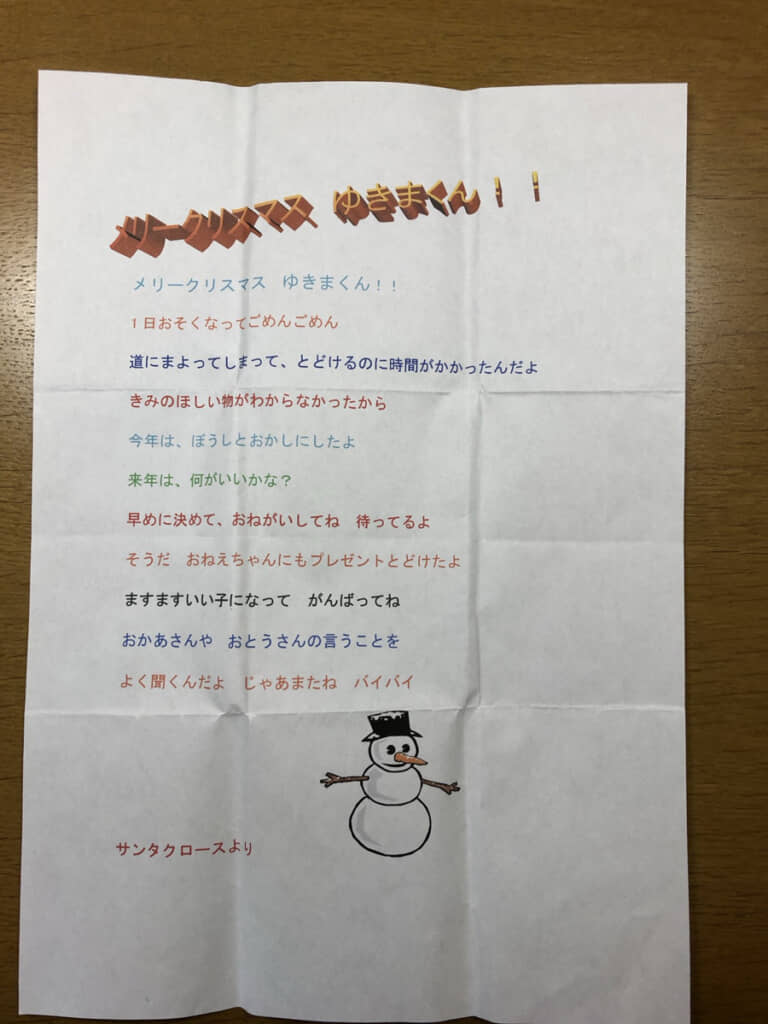 メリークリスマス　ゆきまくん！！
メリークリスマス　ゆきまくん！！
１日おそくなってごめんごめん
道にまよってしまって、とどけるのに時間がかかったんだよ
きみのほしい物がわからなかったから
今年は、ぼうしとおかしにしたよ
来年は、何がいいかな？
早めに決めて、おねがいしてね　待ってるよ
そうだ　おねえちゃんにもプレゼントとどけたよ
ますますいい子になって　がんばってね
おかあさんや　おとうさんの言うことを
よく聞くんだよ　じゃあまたね　バイバイ
サンタクロースより